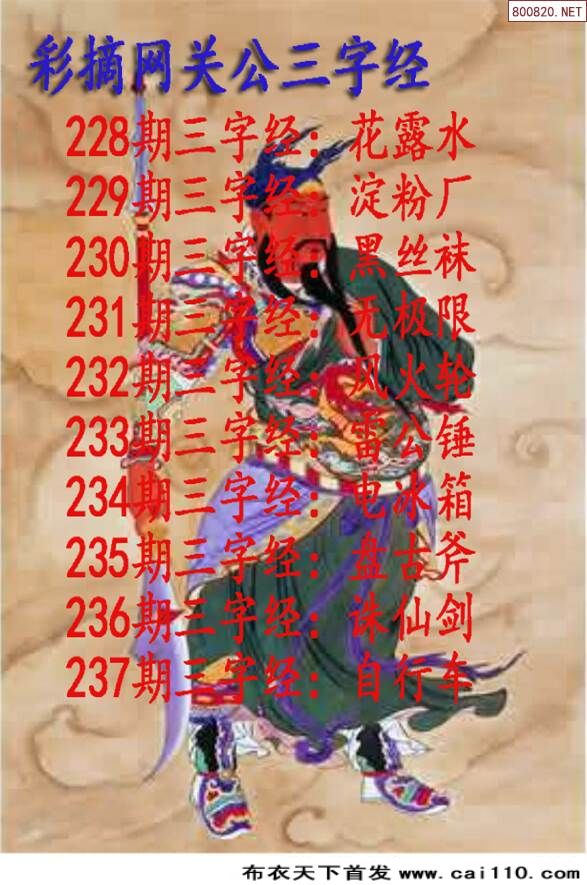 800820.NET
彩摘网关公三字经
228期三字经：花露水
229期三字经：淀粉厂
230期三字经：黑丝袜
231期三字经：无极限
232期三字经：风火轮
233期三字经：雷公锤
234期三字经：电冰箱
235期三字经：盘古斧
236期三字经：诛仙剑
237期三字经：自行车
布衣天下首发 www.cai110.com